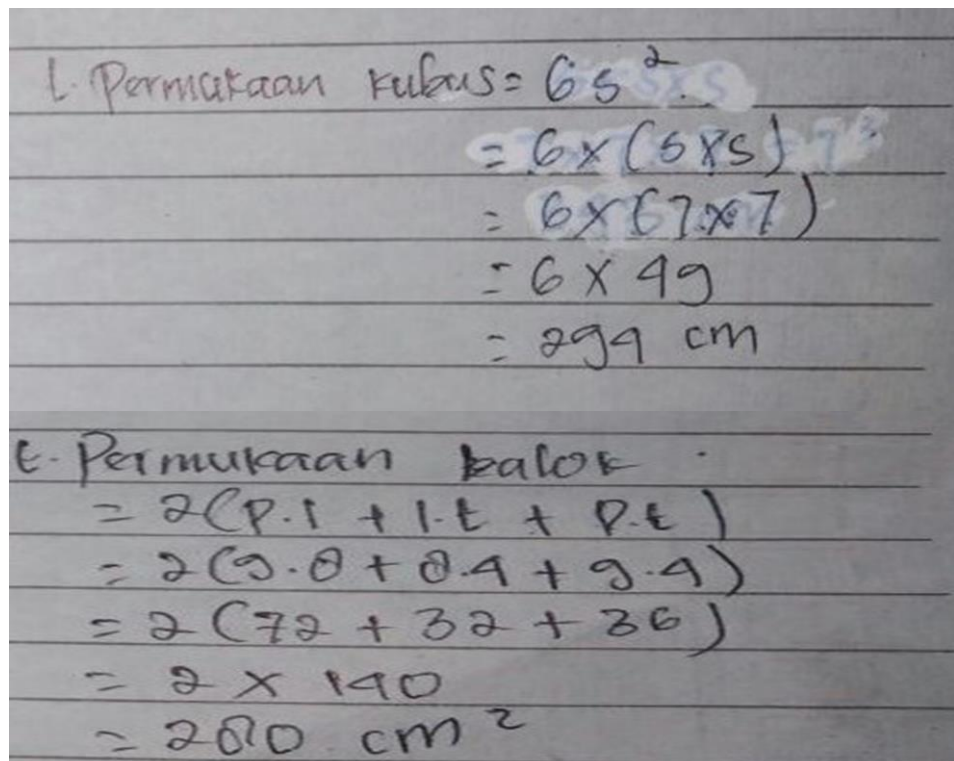 L. Permukaan kubus = 6 s²
= 6 × (s × s)
= 6 × (7 × 7)
= 6 × 49
= 294 cm
L. Permukaan balok
= 2(p.l + l.t + p.t)
= 2(9.8 + 8.4 + 9.4)
= 2 (72 + 32 + 36)
= 2 × 140
= 280 cm²